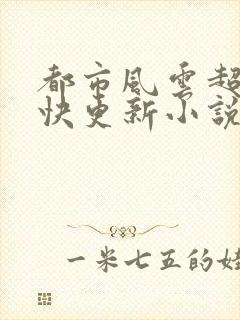 都市風雲超
快更新小說
一米七五的娃